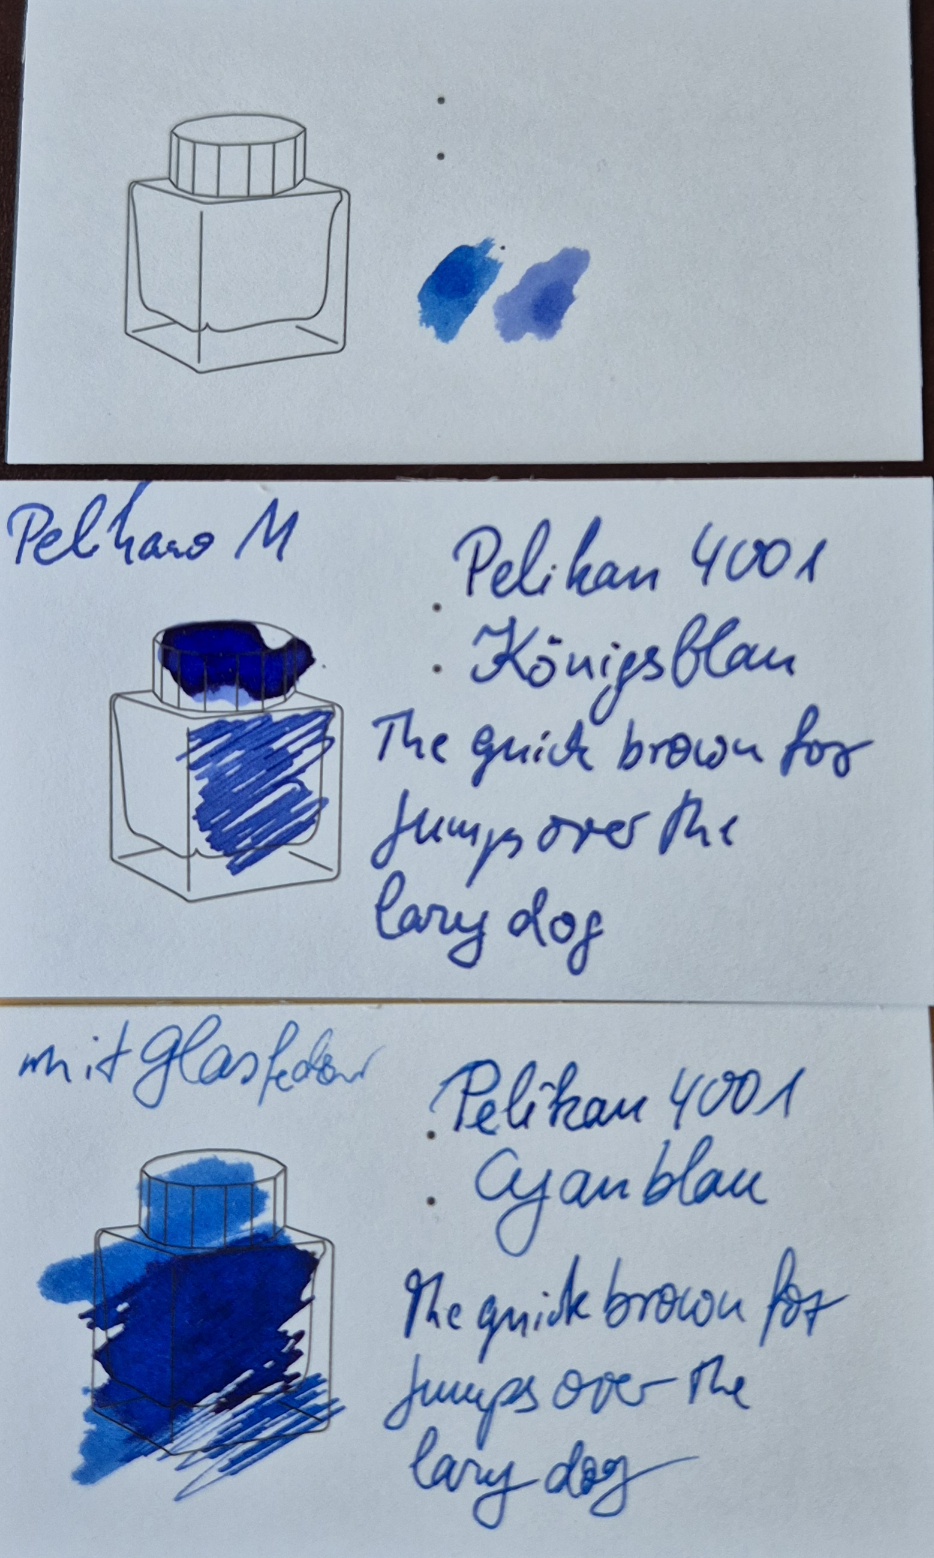 Pelikano M
Pelikan 4001
Königsblau
The quick brown fox
jumps over the
lazy dog
mit Glasfeder
Pelikan 4001
Cyanblau
The quick brown fox
jumps over the
lazy dog